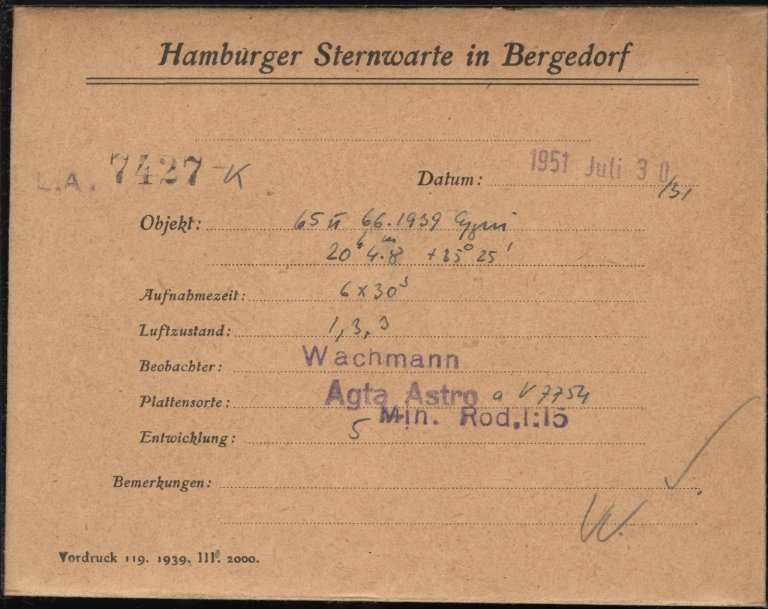 Hamburger Sternwarte in Bergedorf
L.A. 7427-K
Datum: 1951 Juli 30/31
Objekt: 65 u 66.1939 Cygni
20ʰ4.ᵐ8 +35° 25'
Aufnahmezeit: 6 x 30ˢ
Luftzustand: 1, 3, 3
Beobachter: Wachmann
Plattensorte: Agfa Astro a V 7754
Entwicklung: 5 Min. Rod. 1:15
Bemerkungen:
W.
Vordruck 119. 1939. III. 2000.